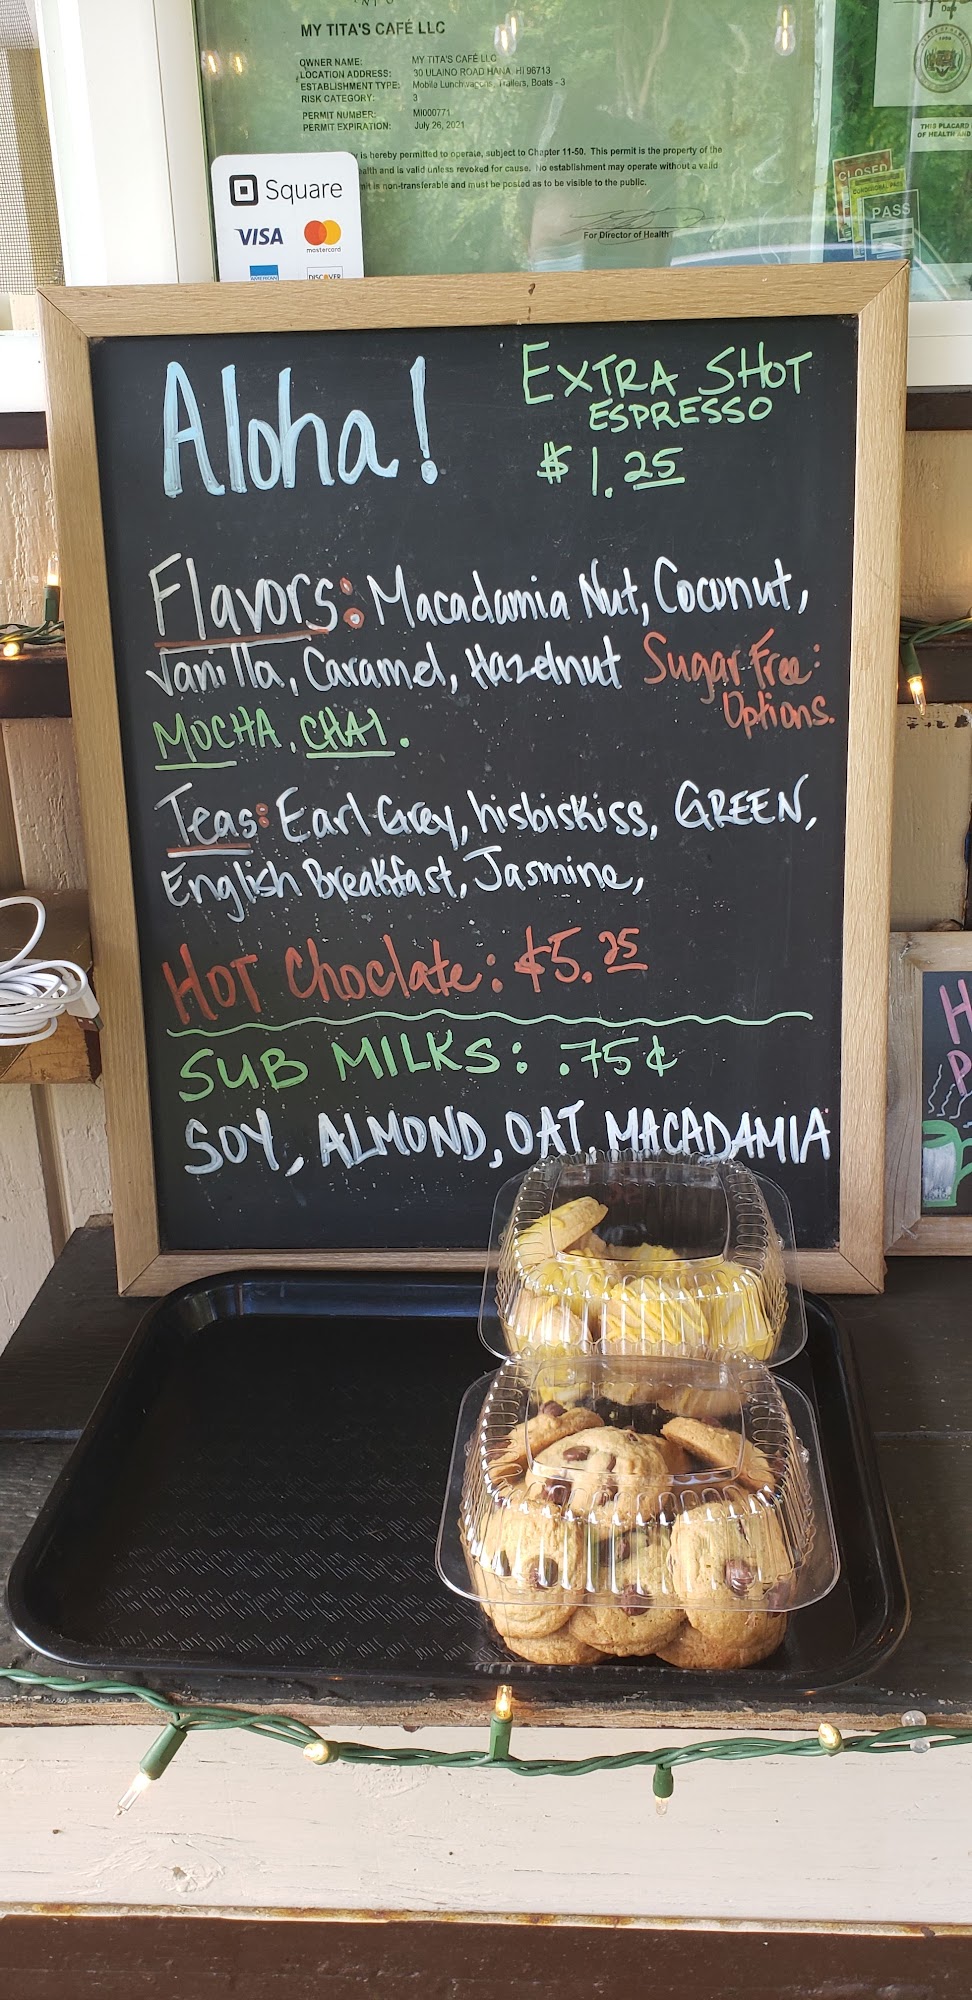 MY TITA'S CAFÉ LLC
OWNER NAME: MY TITA'S CAFÉ LLC
LOCATION ADDRESS: 30 ULAINO ROAD HANA, HI 96713
ESTABLISHMENT TYPE: Mobile Lunchwagons, Trailers, Boats - 3
RISK CATEGORY: 3
PERMIT NUMBER: MI000771
PERMIT EXPIRATION: July 26, 2021
is hereby permitted to operate, subject to Chapter 11-50. This permit is the property of the
and is valid unless revoked for cause. No establishment may operate without a valid
is non-transferable and must be posted as to be visible to the public.
For Director of Health
THIS PLACARD
OF HEALTH AND
CLOSED
CONDITIONAL PASS
PASS
Square
VISA
mastercard
AMERICAN
DISCOVER
Aloha!
EXTRA SHOT
ESPRESSO
$1.25
Flavors: Macadamia Nut, Coconut,
Vanilla, Caramel, Hazelnut Sugar Free:
Options.
MOCHA, CHAI.
Teas: Earl Grey, hisbiskiss, GREEN,
English Breakfast, Jasmine,
HOT Choclate: $5.25
SUB MILKS: .75¢
SOY, ALMOND, OAT, MACADAMIA
H
P